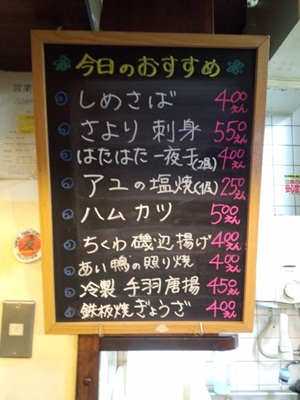 今日のおすすめ
しめさば 400えん
さより 刺身 550えん
はたはた一夜干(2尾) 400えん
アユの塩焼(1尾) 250えん
ハムカツ 500えん
ちくわ磯辺揚げ 400えん
あい鴨の照り焼 400えん
冷製 手羽唐揚 450えん
鉄板焼ぎょうざ 400えん
営業